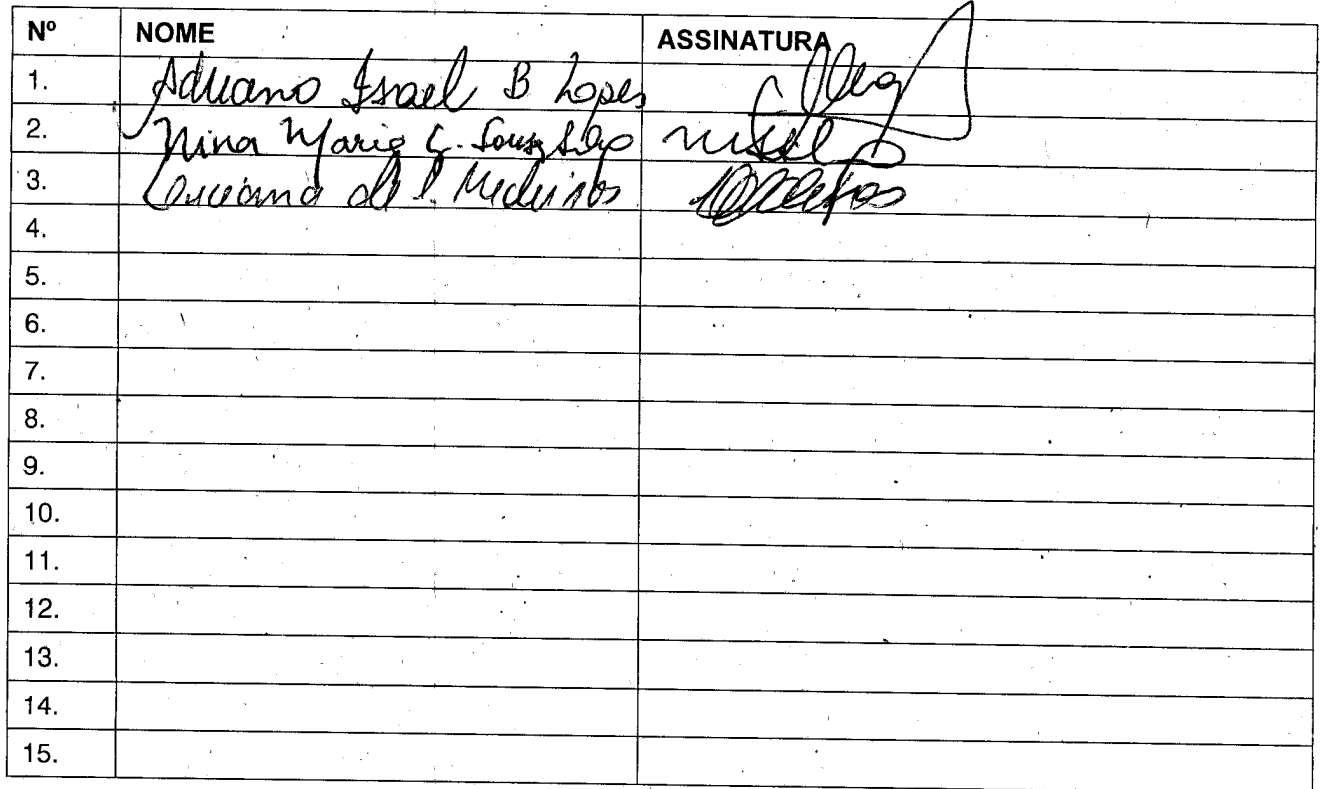 Nº NOME ASSINATURA
1. Adriano Israel B Lopes
2. Nina Maria C. Souza Silva
3. Luciana de S. Medeiros
4.
5.
6.
7.
8.
9.
10.
11.
12.
13.
14.
15.